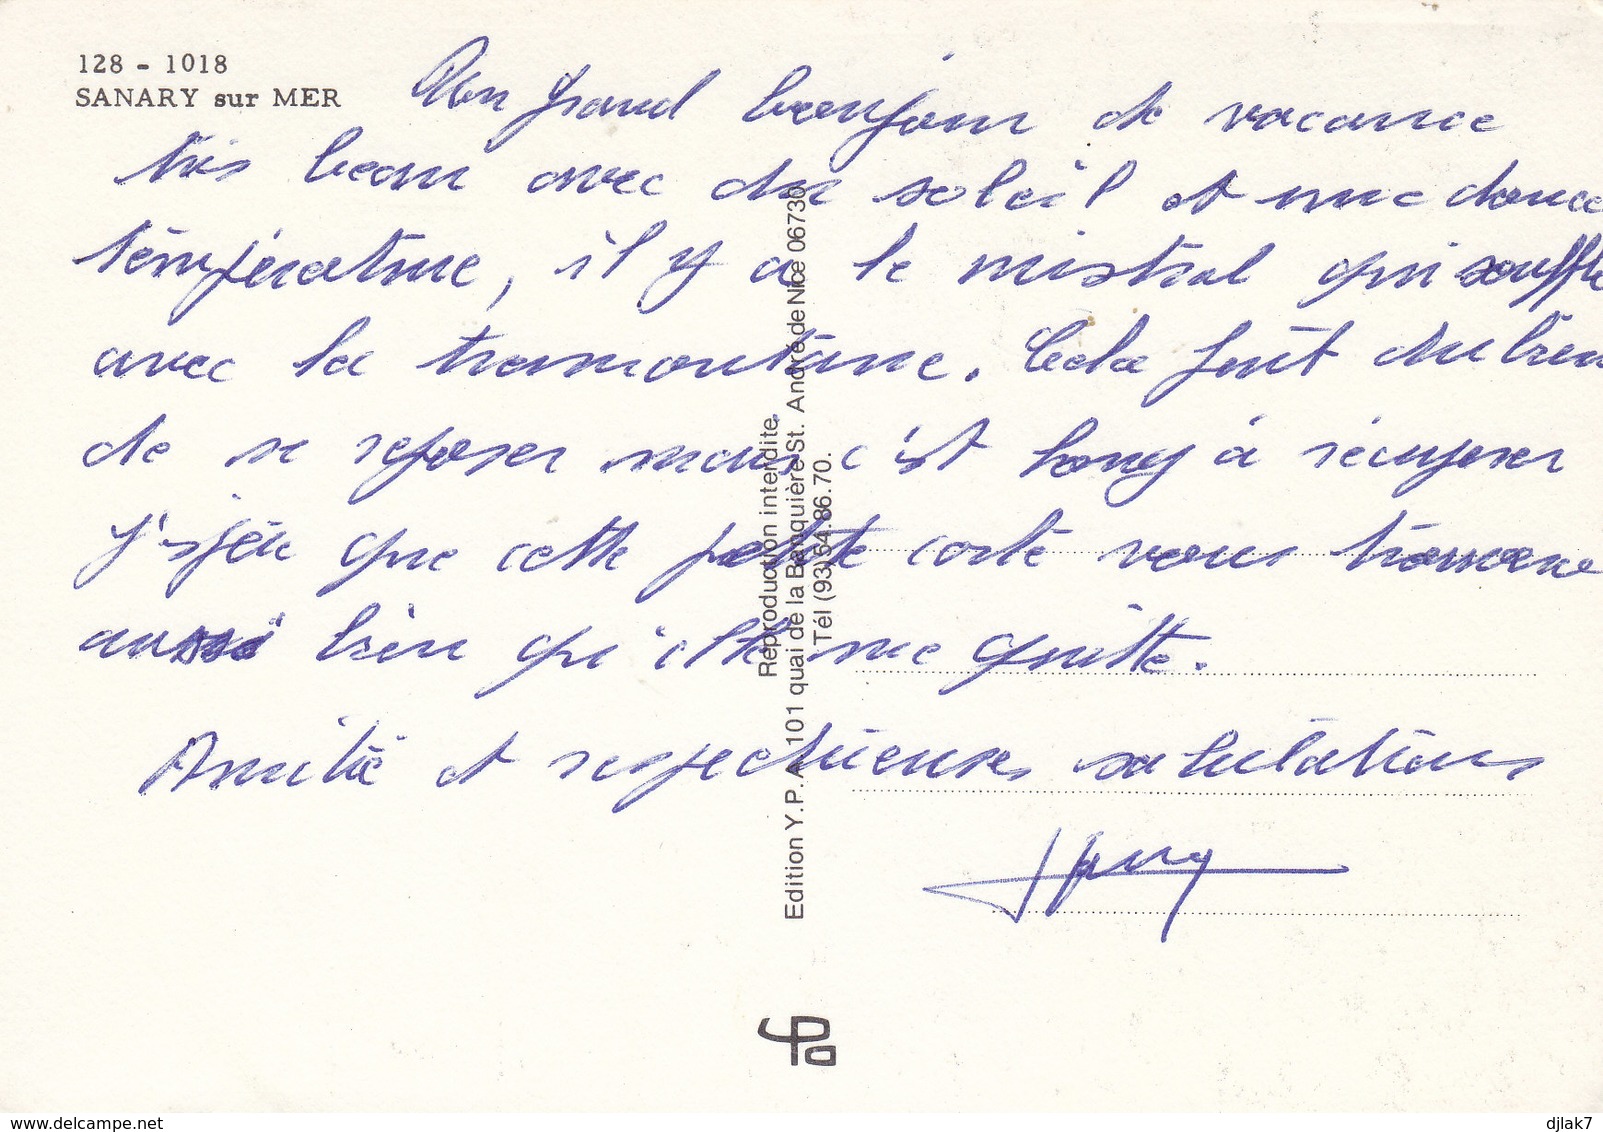 128 - 1018
SANARY sur MER
Un grand bonjour de vacance
très beau avec du soleil et une douce
température, il y a le mistral qui souffle
avec la tramontane. Cela fait du bien
de se reposer mais c'est long à récupérer
j'espère que cette petite carte vous trouvera
aussi bien qu'elle me quitte.
Amitié et respectueuses salutations
Reproduction interdite.
Edition Y.P.A. 101 quai de la Banquière St. André de Nice 06730
Tél (93) 54.86.70.
djlak7